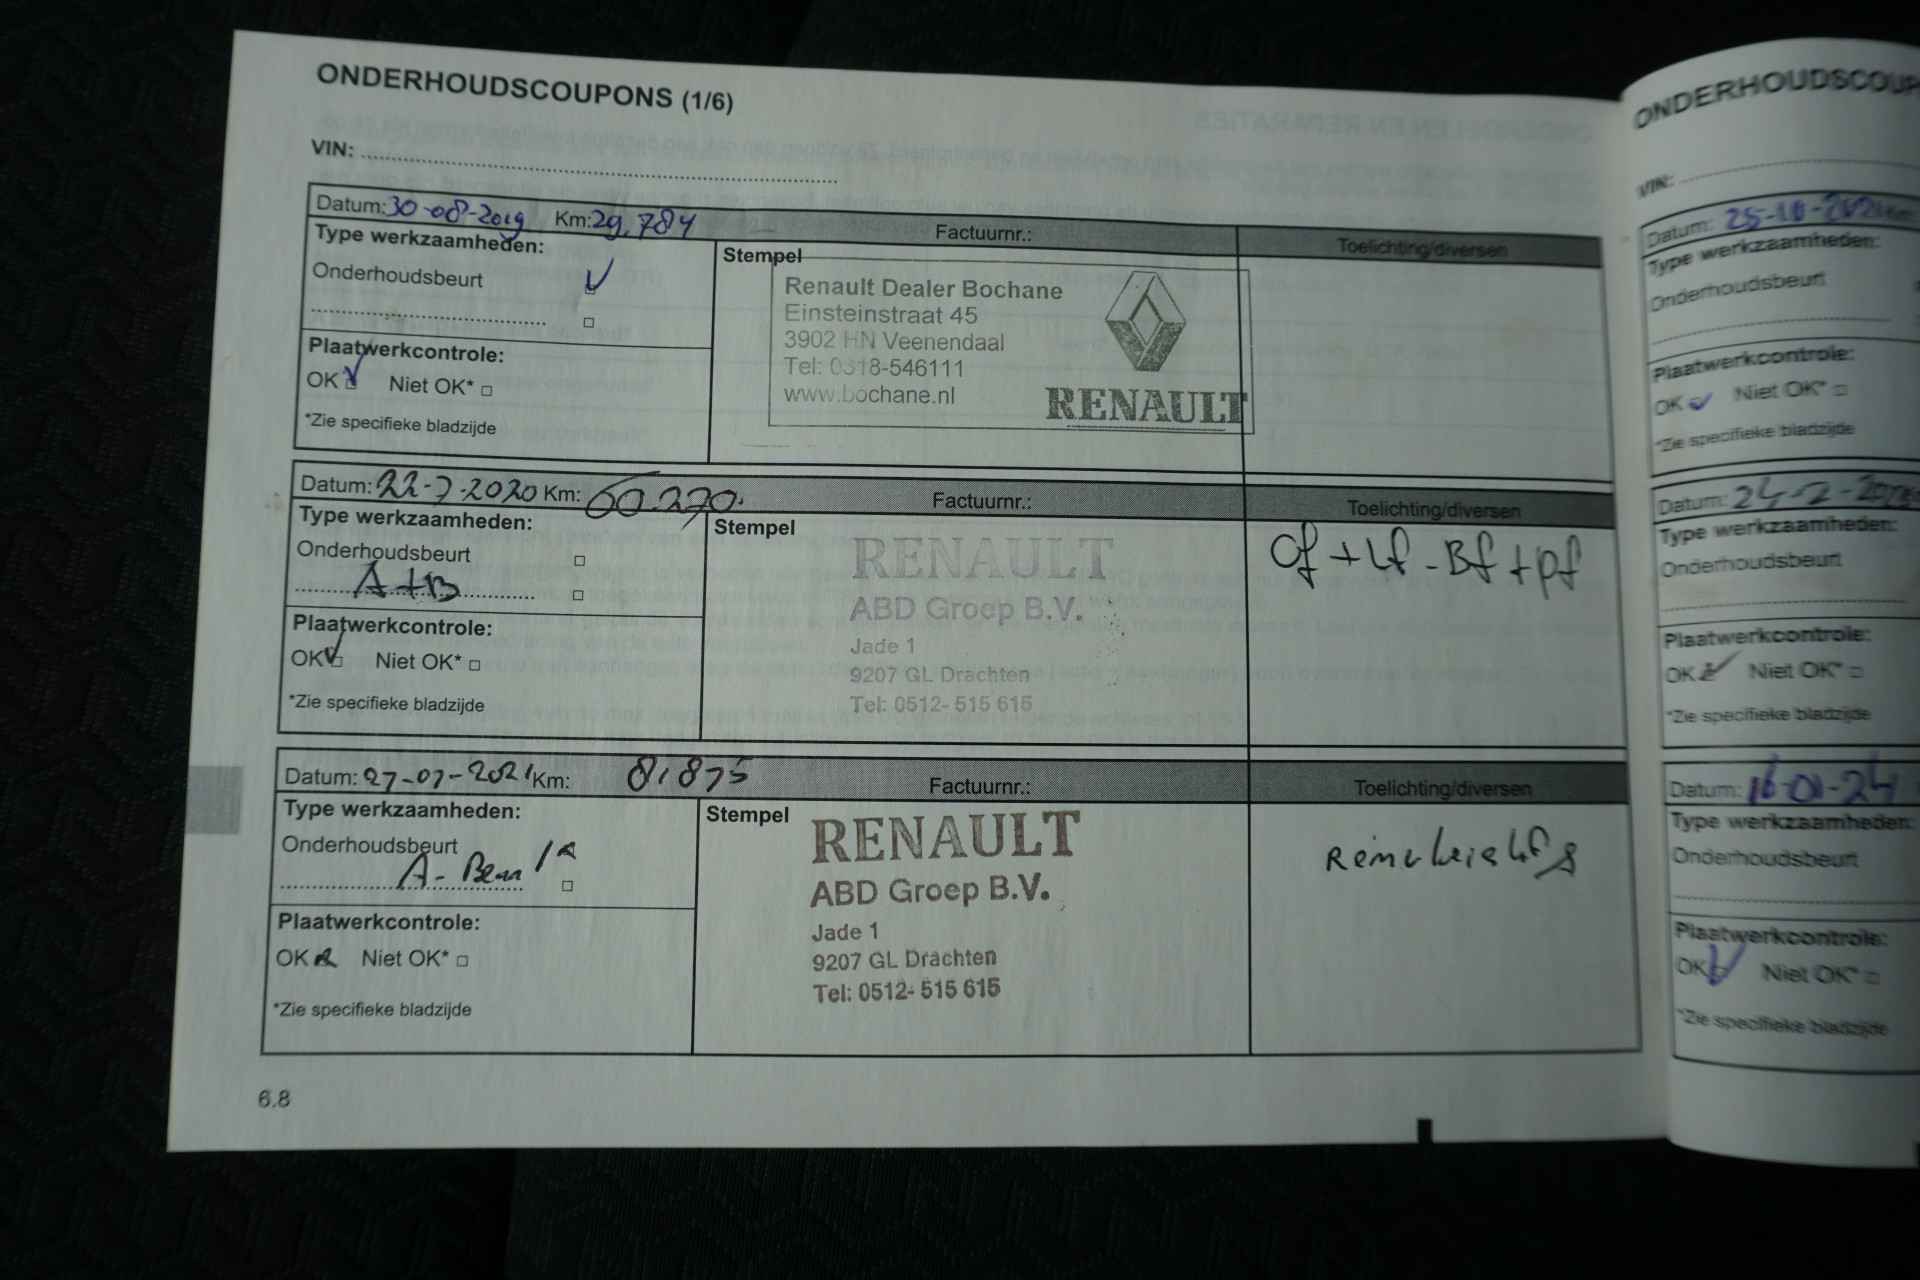 ONDERHOUDSCOUPONS (1/6)
VIN:
Datum: 30-08-2019 Km: 29.784 Factuurnr.: Toelichting/diversen
Type werkzaamheden:
Onderhoudsbeurt
Plaatwerkcontrole:
OK Niet OK*
*Zie specifieke bladzijde
Stempel
Renault Dealer Bochane
Einsteinstraat 45
3902 HN Veenendaal
Tel: 0318-546111
www.bochane.nl
RENAULT
Datum: 22-7-2020 Km: 60.270. Factuurnr.: Toelichting/diversen
Type werkzaamheden:
Onderhoudsbeurt
A+B
Plaatwerkcontrole:
OK Niet OK*
*Zie specifieke bladzijde
Stempel
RENAULT
ABD Groep B.V.
Jade 1
9207 GL Drachten
Tel: 0512- 515 615
Of + Lf - Bf + pf
Datum: 27-07-2021 Km: 81875 Factuurnr.: Toelichting/diversen
Type werkzaamheden:
Onderhoudsbeurt
A-
Plaatwerkcontrole:
OK Niet OK*
*Zie specifieke bladzijde
Stempel
RENAULT
ABD Groep B.V.
Jade 1
9207 GL Drachten
Tel: 0512- 515 615
6.8
VIN:
Datum:
Type werkzaamheden:
Onderhoudsbeurt
Plaatwerkcontrole:
OK Niet OK*
*Zie specifieke bladzijde
Datum: 24-2-
Type werkzaamheden:
Onderhoudsbeurt
Plaatwerkcontrole:
OK Niet OK*
*Zie specifieke bladzijde
Datum: 16-01-24
Type werkzaamheden:
Onderhoudsbeurt
Plaatwerkcontrole:
OK Niet OK*
*Zie specifieke bladzijde